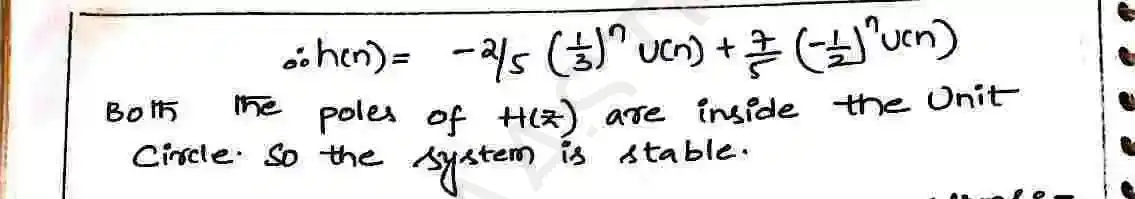 ∴ h(n) = -2/5 (1/3)^n u(n) + 7/5 (-1/2)^n u(n)
Both the poles of H(z) are inside the Unit
Circle. So the system is stable.